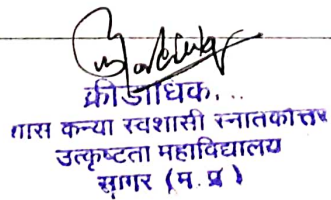 क्रीडाधिक...
शास कन्या स्वशासी स्नातकोत्तर
उत्कृष्टता महाविद्यालय
सागर (म. प्र)